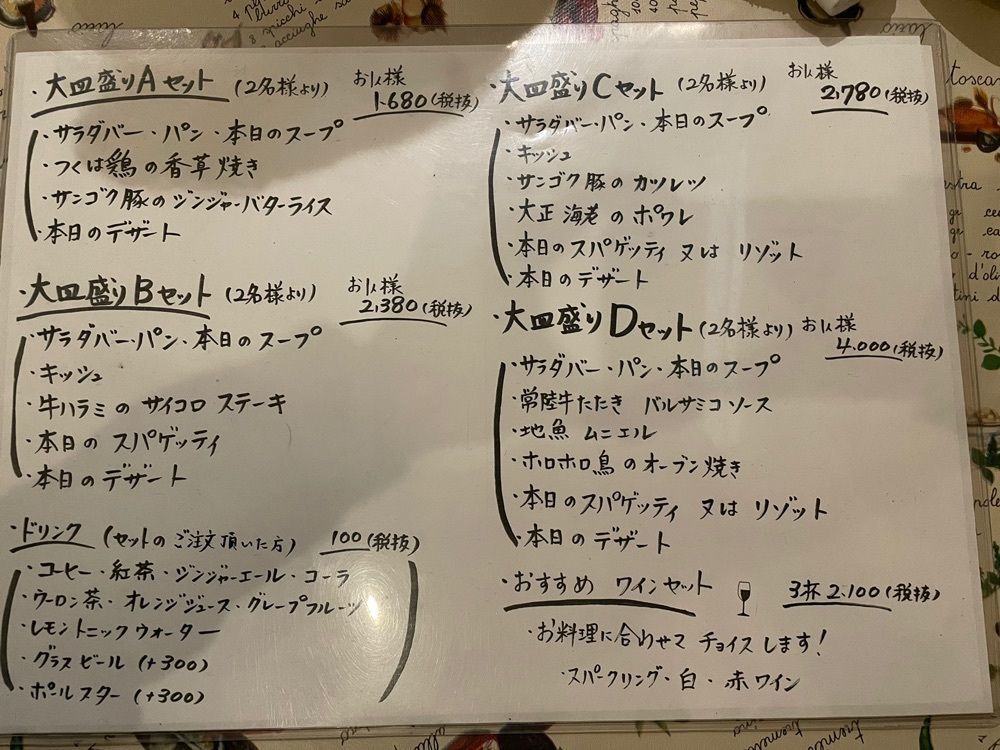 ・大皿盛りAセット (2名様より) お1人様
1,680(税抜)
・サラダバー・パン・本日のスープ
・つくば鶏の香草焼き
・サンゴク豚のジンジャーバターライス
・本日のデザート
・大皿盛りBセット (2名様より) お1人様
2,380(税抜)
・サラダバー・パン・本日のスープ
・キッシュ
・牛ハラミのサイコロステーキ
・本日のスパゲッティ
・本日のデザート
・ドリンク (セットのご注文頂いた方) 100(税抜)
・コーヒー・紅茶・ジンジャーエール・コーラ
・ウーロン茶・オレンジジュース・グレープフルーツ
・レモントニックウォーター
・グラスビール (+300)
・ポールスター (+300)
・大皿盛りCセット (2名様より) お1人様
2,780(税抜)
・サラダバー・パン・本日のスープ
・キッシュ
・サンゴク豚のカツレツ
・大正海老のポワレ
・本日のスパゲッティ又はリゾット
・本日のデザート
・大皿盛りDセット (2名様より) お1人様
4,000(税抜)
・サラダバー・パン・本日のスープ
・常陸牛たたき バルサミコソース
・地魚ムニエル
・ホロホロ鳥のオーブン焼き
・本日のスパゲッティ又はリゾット
・本日のデザート
・おすすめ ワインセット 3杯2,100(税抜)
・お料理に合わせてチョイスします!
・スパークリング・白・赤ワイン